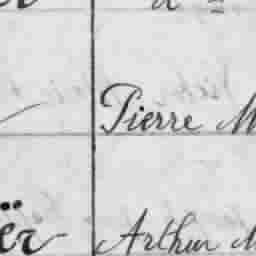 Pierre M
ër Arthur M